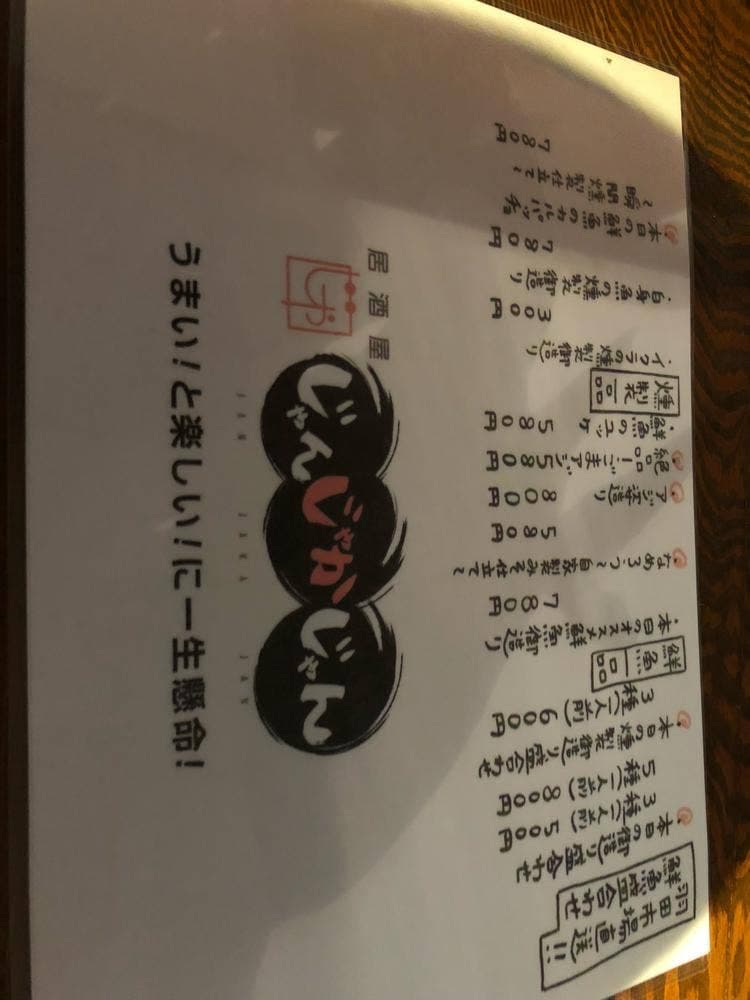 羽田市場直送!!
鮮魚盛合わせ
本日の御造り盛合わせ
3種(一人前) 500円
5種(一人前) 800円
本日の燻製御造り盛合わせ
3種(一人前) 600円
鮮魚一品
・本日のオススメ鮮魚御造り
780円
なめろう〜自家製みそ仕立て〜
580円
アジ姿造り 800円
絶品!ごまアジ 580円
・鮮魚のユッケ 580円
燻製一品
・イクラの燻製御造り
300円
・白身魚の燻製御造り
780円
本日の鮮魚のカルパッチョ
〜瞬間燻製仕立て〜
780円
居酒屋
じゃ
じゃん
じゃか
じゃん
JAN
JAKA
JAN
うまい!と楽しい!に一生懸命!